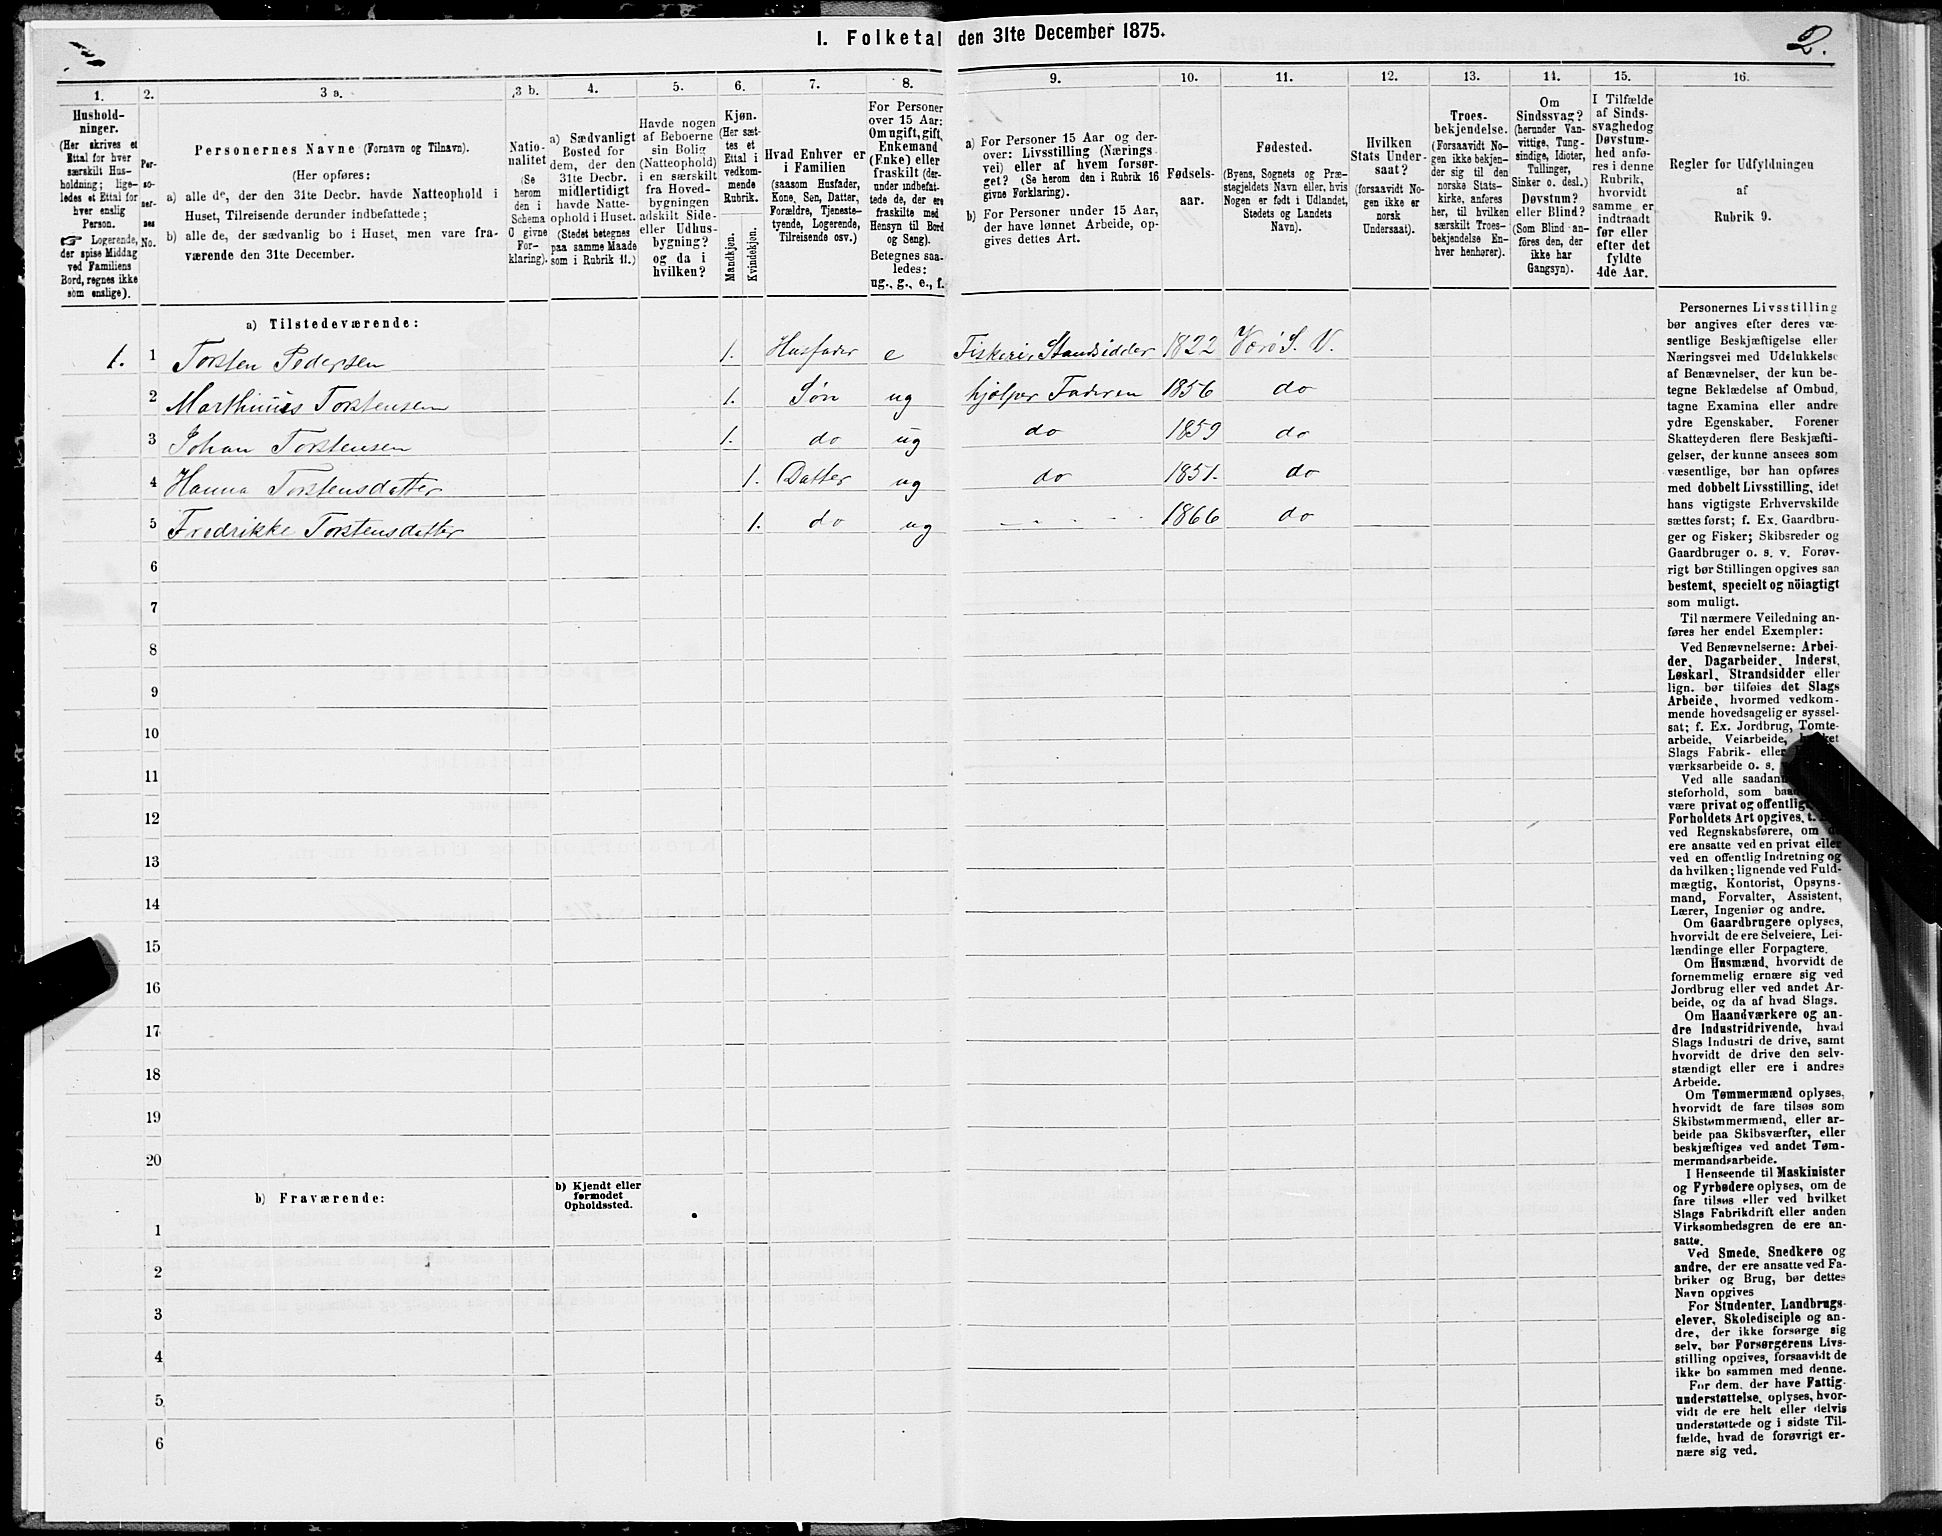 I. Folketal den 31te December 1875.
2.
1.
2.
3 a.
3 b.
4.
5.
6.
7.
8.
9.
10.
11.
12.
13.
14.
15.
16.
Hushold-
ninger.
(Her skrives et
Ettal for hver
særskilt Hus-
holdning; lige-
ledes et Ettal for
hver enslig
Person.
☞ Logerende,
der spise Middag
ved Familiens
Bord, regnes ikke
som enslige).
Per-
so-
ner-
nes
No.
Personernes Navne (Fornavn og Tilnavn).
(Her opføres:
a) alle de, der den 31te Decbr. havde Natteophold i
Huset, Tilreisende derunder indbefattede;
b) alle de, der sædvanlig bo i Huset, men vare fra-
værende den 31te December.
Natio-
nalitet
(Se
herom
den i
Schema
O givne
For-
klaring).
a) Sædvanligt
Bosted for
dem, der den
31te Decbr.
midlertidigt
havde Natte-
ophold i Huset.
(Stedet betegnes
paa samme Maade
som i Rubrik 11.)
Havde nogen
af Beboerne
sin Bolig
(Natteophold)
i en særskilt
fra Hoved-
bygningen
adskilt Side-
eller Udhus-
bygning?
og da i
hvilken?
Kjøn.
(Her sæt-
tes et
Ettal i
vedkom-
mende
Rubrik.
Mandkjøn.
Kvindekjøn.
Hvad Enhver er
i Familien
(saasom Husfader,
Kone, Søn, Datter,
Forældre, Tjeneste-
tyende, Logerende,
Tilreisende osv.)
For Personer
over 15 Aar:
Om ugift, gift,
Enkemand
(Enke) eller
fraskilt (der-
under indbefat-
tede de, der ere
fraskilte med
Hensyn til Bord
og Seng).
Betegnes saa-
ledes:
ug., g., e., f.
a) For Personer 15 Aar og der-
over: Livsstilling (Nærings-
vei) eller af hvem forsør-
get? (Se herom den i Rubrik 16
givne Forklaring).
b) For Personer under 15 Aar,
der have lønnet Arbeide, op-
gives dettes Art.
Fødsels-
aar.
Fødested.
(Byens, Sognets og Præ-
stegjeldets Navn eller, hvis
Nogen er født i Udlandet,
Stedets og Landets
Navn).
Hvilken
Stats Under-
saat?
(forsaavidt No-
gen ikke er
norsk
Undersaat).
Troes-
bekjendelse.
(Forsaavidt No-
gen ikke bekjen-
der sig til den
norske Stats-
kirke, anføres
her, til hvilken
særskilt Troes-
bekjendelse En-
hver henhører).
Om
Sindssvag?
(herunder Van-
vittige, Tung-
sindige, Idioter,
Tullinger,
Sinker o. desl.)
Døvstum?
eller Blind?
(Som Blind an-
føres den, der
ikke har
Gangsyn).
I Tilfælde
af Sinds-
svaghed og
Døvstum-
hed anfø-
res i denne
Rubrik,
hvorvidt
samme er
indtraadt
før eller
efter det
fyldte
4de Aar.
Regler for Udfyldningen
af
Rubrik 9.
a) Tilstedeværende:
1. 1 Torsten Pedersen 1. Husfader e Fiskeri, Standsidder 1822 Værø S. V.
2 Marthinius Torstensen 1. Søn ug hjølper Faderen 1856 do
3 Johan Torstensen 1. do ug do 1859 do
4 Hanna Torstensdatter 1. Datter ug do 1851. do
5 Fredrikke Torstensdatter 1. do ug - - - - 1866 do
6
7
8
9
10
11
12
13
14
15
16
17
18
19
20
b) Fraværende:
b) Kjendt eller
formodet
Opholdssted.
1
2
3
4
5
6
Personernes Livsstilling
bør angives efter deres væ-
sentlige Beskjæftigelse eller
Næringsvei med Udelukkelse
af Benævnelser, der kun be-
tegne Beklædelse af Ombud,
tagne Examina eller andre
ydre Egenskaber. Forener
Skatteyderen flere Beskjæfti-
gelser, der kunne ansees som
væsentlige, bør han opføres
med dobbelt Livsstilling, idet
hans vigtigste Erhvervskilde
sættes først; f. Ex. Gaardbru-
ger og Fisker; Skibsreder og
Gaardbruger o. s. v. Forøv-
rigt bør Stillingen opgives saa
bestemt, specielt og nöiagtigt
som muligt.
Til nærmere Veiledning an-
føres her endel Exempler:
Ved Benævnelserne: Arbei-
der, Dagarbeider, Inderst,
Løskarl, Strandsidder eller
lign. bør tilføies det Slags
Arbeide, hvormed vedkom-
mende hovedsagelig er syssel-
sat; f. Ex. Jordbrug, Tomte-
arbeide, Veiarbeide,
Slags Fabrik- eller
værksarbeide o. s.
Ved alle saadan
steforhold, som
være privat og offentlig
Forholdets Art opgives, t.
ved Regnskabsførere, om
ere ansatte ved en privat eller
ved en offentlig Indretning og
da hvilken; lignende ved Fuld-
mægtig, Kontorist, Opsyns-
mand, Forvalter, Assistent,
Lærer, Ingeniør og andre.
Om Gaardbrugere oplyses,
hvorvidt de ere Selveiere, Lei-
lændinge eller Forpagtere.
Om Husmænd, hvorvidt de
fornemmelig ernære sig ved
Jordbrug eller ved andet Ar-
beide, og da af hvad Slags.
Om Haandværkere og an-
dre Industridrivende, hvad
Slags Industri de drive, samt
hvorvidt de drive den selv-
stændigt eller ere i andres
Arbeide.
Om Tømmermænd oplyses,
hvorvidt de fare tilsøs som
Skibstømmermænd, eller ar-
beide paa Skibsværfter, eller
beskjæftiges ved andet Tøm-
mermandsarbeide.
I Henseende til Maskinister
og Fyrbødere oplyses, om de
fare tilsøs eller ved hvilket
Slags Fabrikdrift eller anden
Virksomhedsgren de ere an-
satte.
Ved Smede, Snedkere og
andre, der ere ansatte ved Fa-
briker og Brug, bør dettes
Navn opgives
For Studenter, Landbrugs-
elever, Skoledisciple og an-
dre, der ikke forsørge sig
selv, bør Forsørgerens Livs-
stilling opgives, forsaavidt de
ikke bo sammen med denne.
For dem, der have Fattig-
understøttelse, oplyses, hvor-
vidt de ere helt eller delvis
understøttede og i sidste Til-
fælde, hvad de forøvrigt er-
nære sig ved.